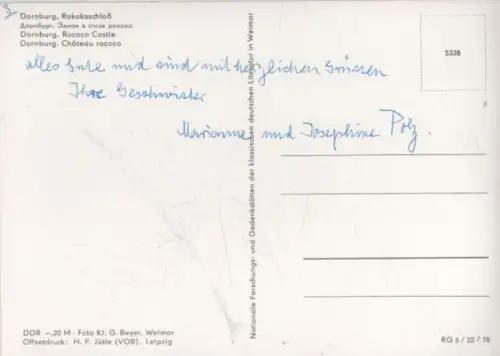 3
Dornburg, Rokokoschloß
Дорнбург. Замок в стиле рококо
Dornburg. Rococo Castle
Dornburg. Château rococo
5338
alles Gute und sind mit herzlichen Grüssen
Ihre Geschwister
Marianne und Josephine Polz.
Nationale Forschungs- und Gedenkstätten der klassischen deutschen Literatur in Weimar
DDR -.20 M · Foto Kl. G. Beyer, Weimar
Offsetdruck: H. F. Jütte (VOB), Leipzig
RG 5 / 22 / 78